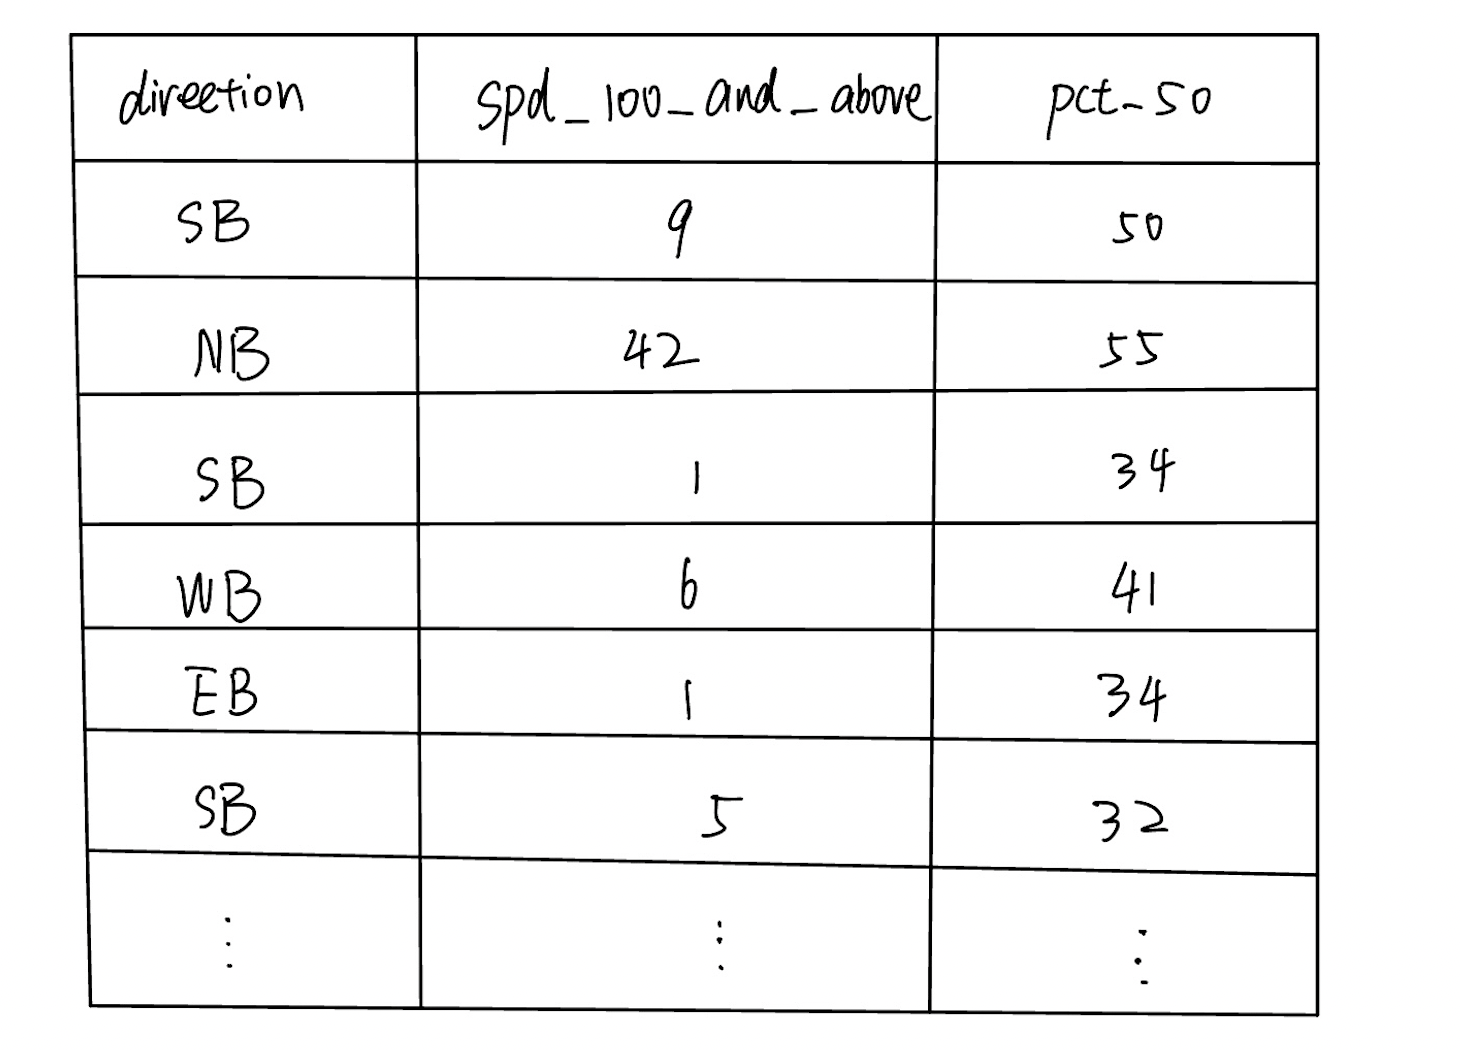 direction spd_100_and_above pct_50
SB 9 50
NB 42 55
SB 1 34
WB 6 41
EB 1 34
SB 5 32
⋮ ⋮ ⋮